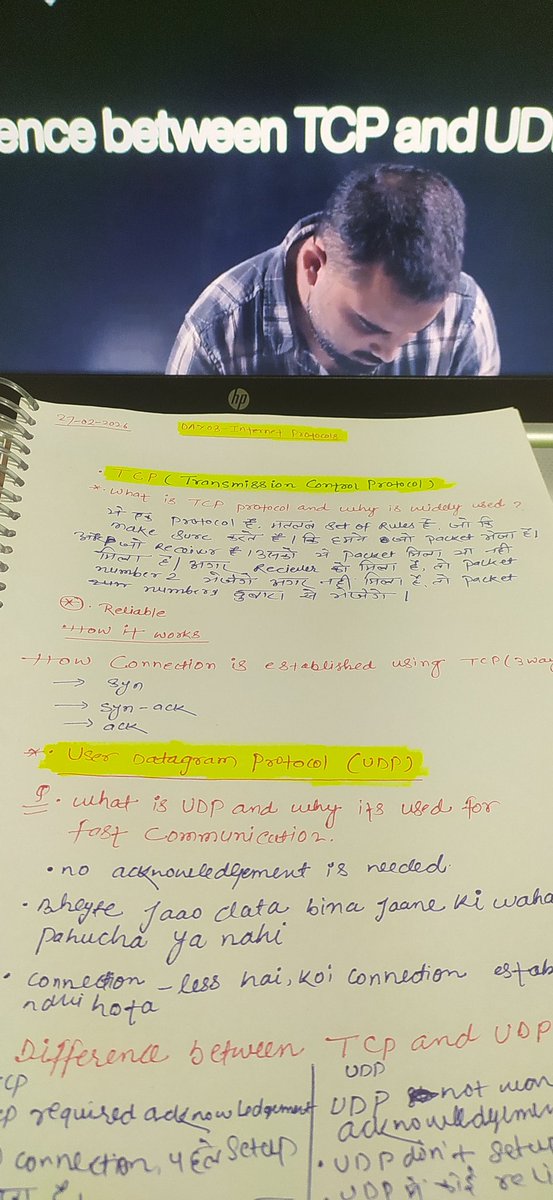 ence between TCP and UD
hp
27-02-2026
DAY03-Internet Protocols
• TCP (Transmission Control Protocol)
* what is TCP protocol and why is widely used?
ये एक Protocol है, मतलब set of Rules है, जो कि
make sure करते हैं। कि हमने जो packet भेजा है।
जो Receiver है। उसको ये packet मिला या नही
मिला है। अगर Reciever को मिला है, तो packet
number 2 भेजेगे अगर नही मिला है, तो packet
number 1 दुबारा से भेजेगे।
* • Reliable
How it works
How Connection is established using TCP (3way
→ syn
→ syn-ack
→ ack
* • User Datagram Protocol (UDP)
Q • what is UDP and why its used for
fast Communication.
• no acknowledgement is needed.
• Bhejte Jaao data bina Jaane ki waha
Pahucha ya nahi
• connection-less hai, koi connection estab
nahi hota
Difference between TCP and UDP
TCP
UDP
required acknowledgement
connection, पहले setup
UDP not
acknowledgemen
• UDP don't setup
• UDP में कोई reli